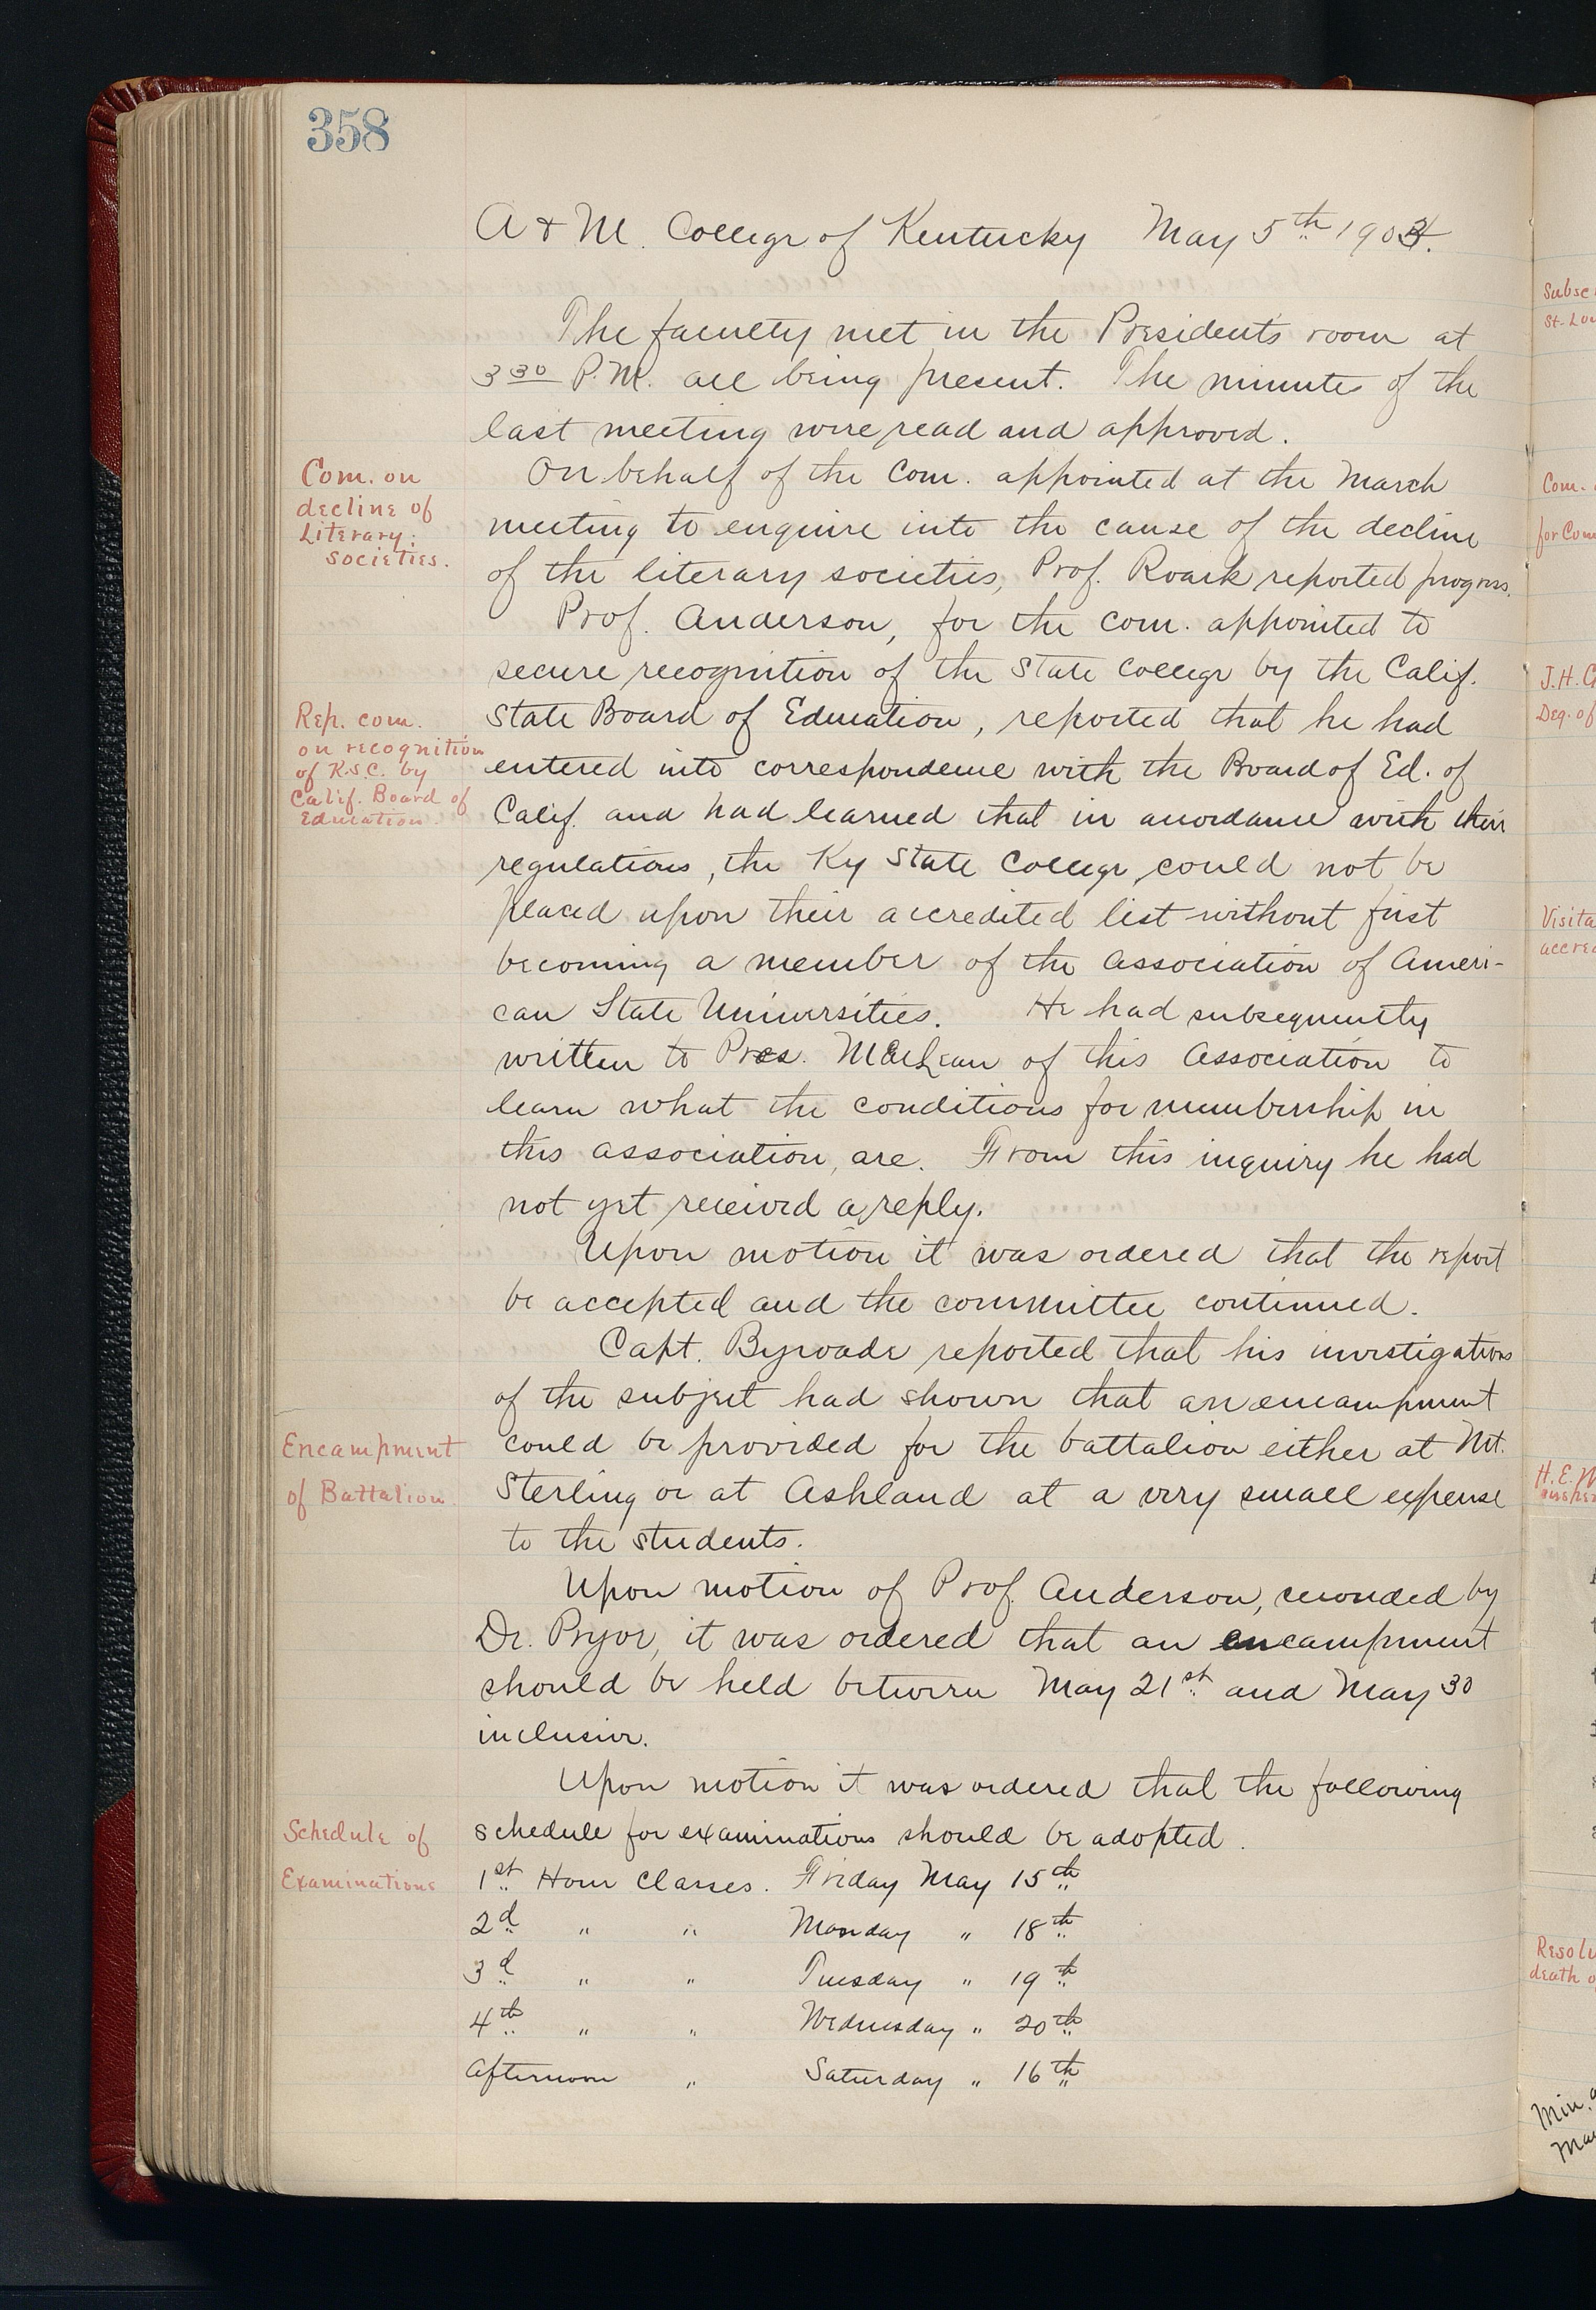 358
A & M. College of Kentucky May 5th 1903.
The faculty met in the President's room at
3 30 P.M. all being present. The minutes of the
last meeting were read and approved.
Com. on
decline of
Literary
Societies.
On behalf of the Com. appointed at the March
meeting to enquire into the cause of the decline
of the literary societies, Prof. Roark reported progress.
Prof. Anderson, for the com. appointed to
secure recognition of the State College by the Calif.
Rep. com.
on recognition
of K.S.C. by
Calif. Board of
Education.
State Board of Education, reported that he had
entered into correspondence with the Board of Ed. of
Calif. and had learned that in accordance with their
regulations, the Ky State College, could not be
placed upon their accredited list without first
becoming a member of the Association of Ameri-
can State Universities. He had subsequently
written to Pres. MacLean of this Association to
learn what the conditions for membership in
this association, are. From this inquiry he had
not yet received a reply.
Upon motion it was ordered that the report
be accepted and the committee continued.
Capt. Byroade reported that his investigations
of the subject had shown that an encampment
Encampment
of Battalion.
could be provided for the battalion either at Mt.
Sterling or at Ashland at a very small expense
to the students.
Upon motion of Prof. Anderson, seconded by
Dr. Pryor, it was ordered that an encampment
should be held between May 21st and May 30
inclusive.
Upon motion it was ordered that the following
Schedule of
Examinations
schedule for examinations should be adopted.
1st Hour Classes. Friday May 15th
2d " " Monday " 18th
3d " " Tuesday " 19th
4th " " Wednesday " 20th
Afternoon " Saturday " 16th
St. Lou
Com.
for Com
J.H.
Deg. of
Visita
accred
H.E.
Resolu
death o
Min.